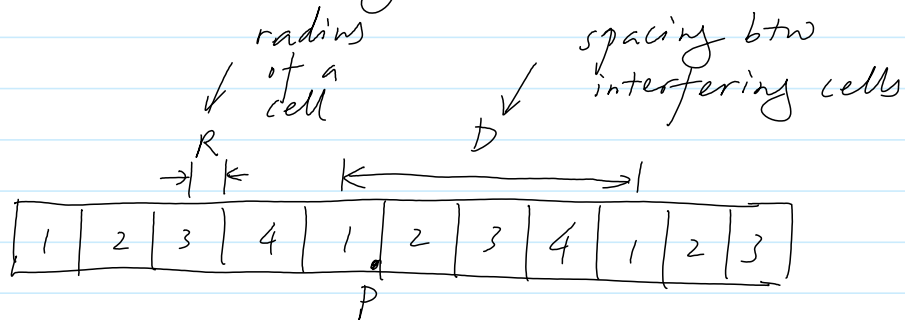 radius
of a
cell
spacing btw
interfering cells
R
D
1 2 3 4 1 2 3 4 1 2 3
P